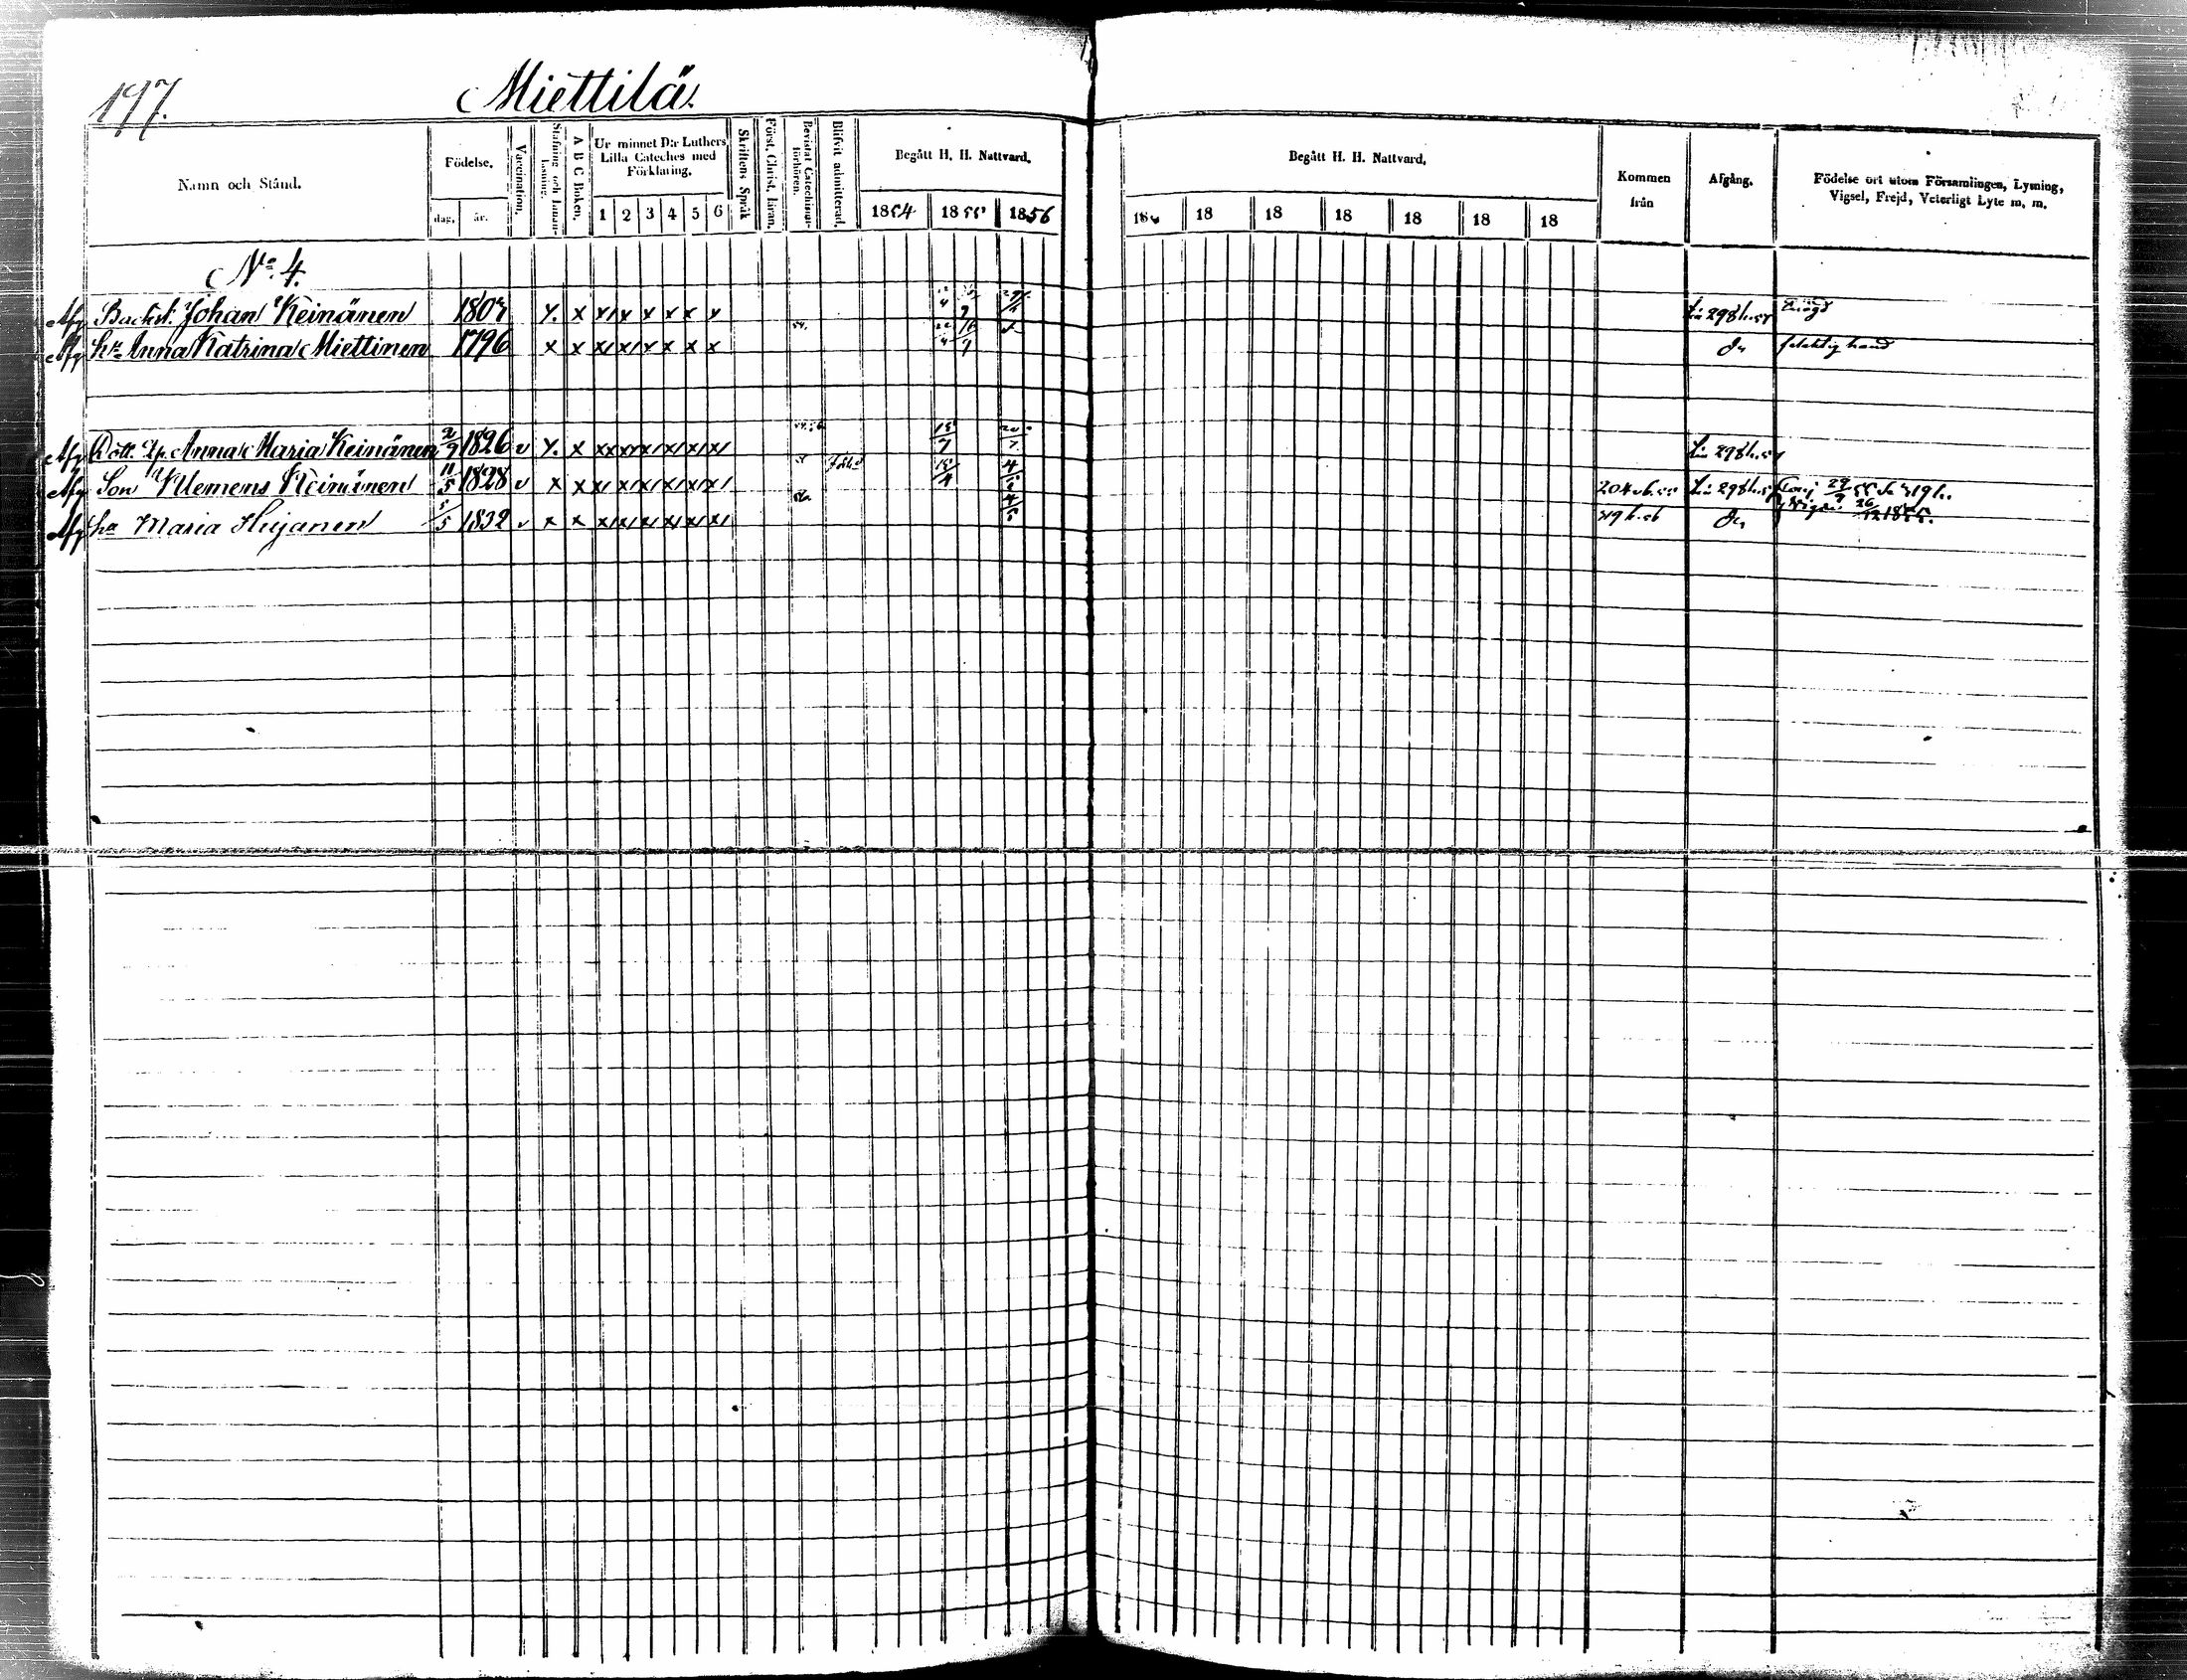 197.
Miettilä.
Namn och Stånd.
Födelse.
dag. år.
Vaccination.
Stafning och Innanläsning.
A B C Boken.
Ur minnet D:r Luthers Lilla Cateches med Förklaring.
1 2 3 4 5 6
Skriftens Språk
Först. Christ. läran.
Bevistat Catechismiförhören.
Blifvit admitterad.
Begått H. H. Nattvard.
1854 1855 1856
Begått H. H. Nattvard.
18 18 18 18 18 18 18
Kommen från
Afgång.
Födelse ort utom Församlingen, Lysning, Vigsel, Frejd, Veterligt Lyte m. m.
No. 4.
Afg Backst. Johan Keinänen x x x x x x x 298
Afg hu Anna Katrina Miettinen 1796 x x x x x x x x do hand
Afg Dott. Anna Maria Keinänen 2/9 1826 v x x x x x x x 15/7 298
Afg Son Klemens Keinänen 11/5 1828 v x x x x x x x x 15/4 204 298 29/9 55
Afg hu Maria Heijanen 5/5 1832 v x x x x x x x x 4/5 do 26/12 1855.